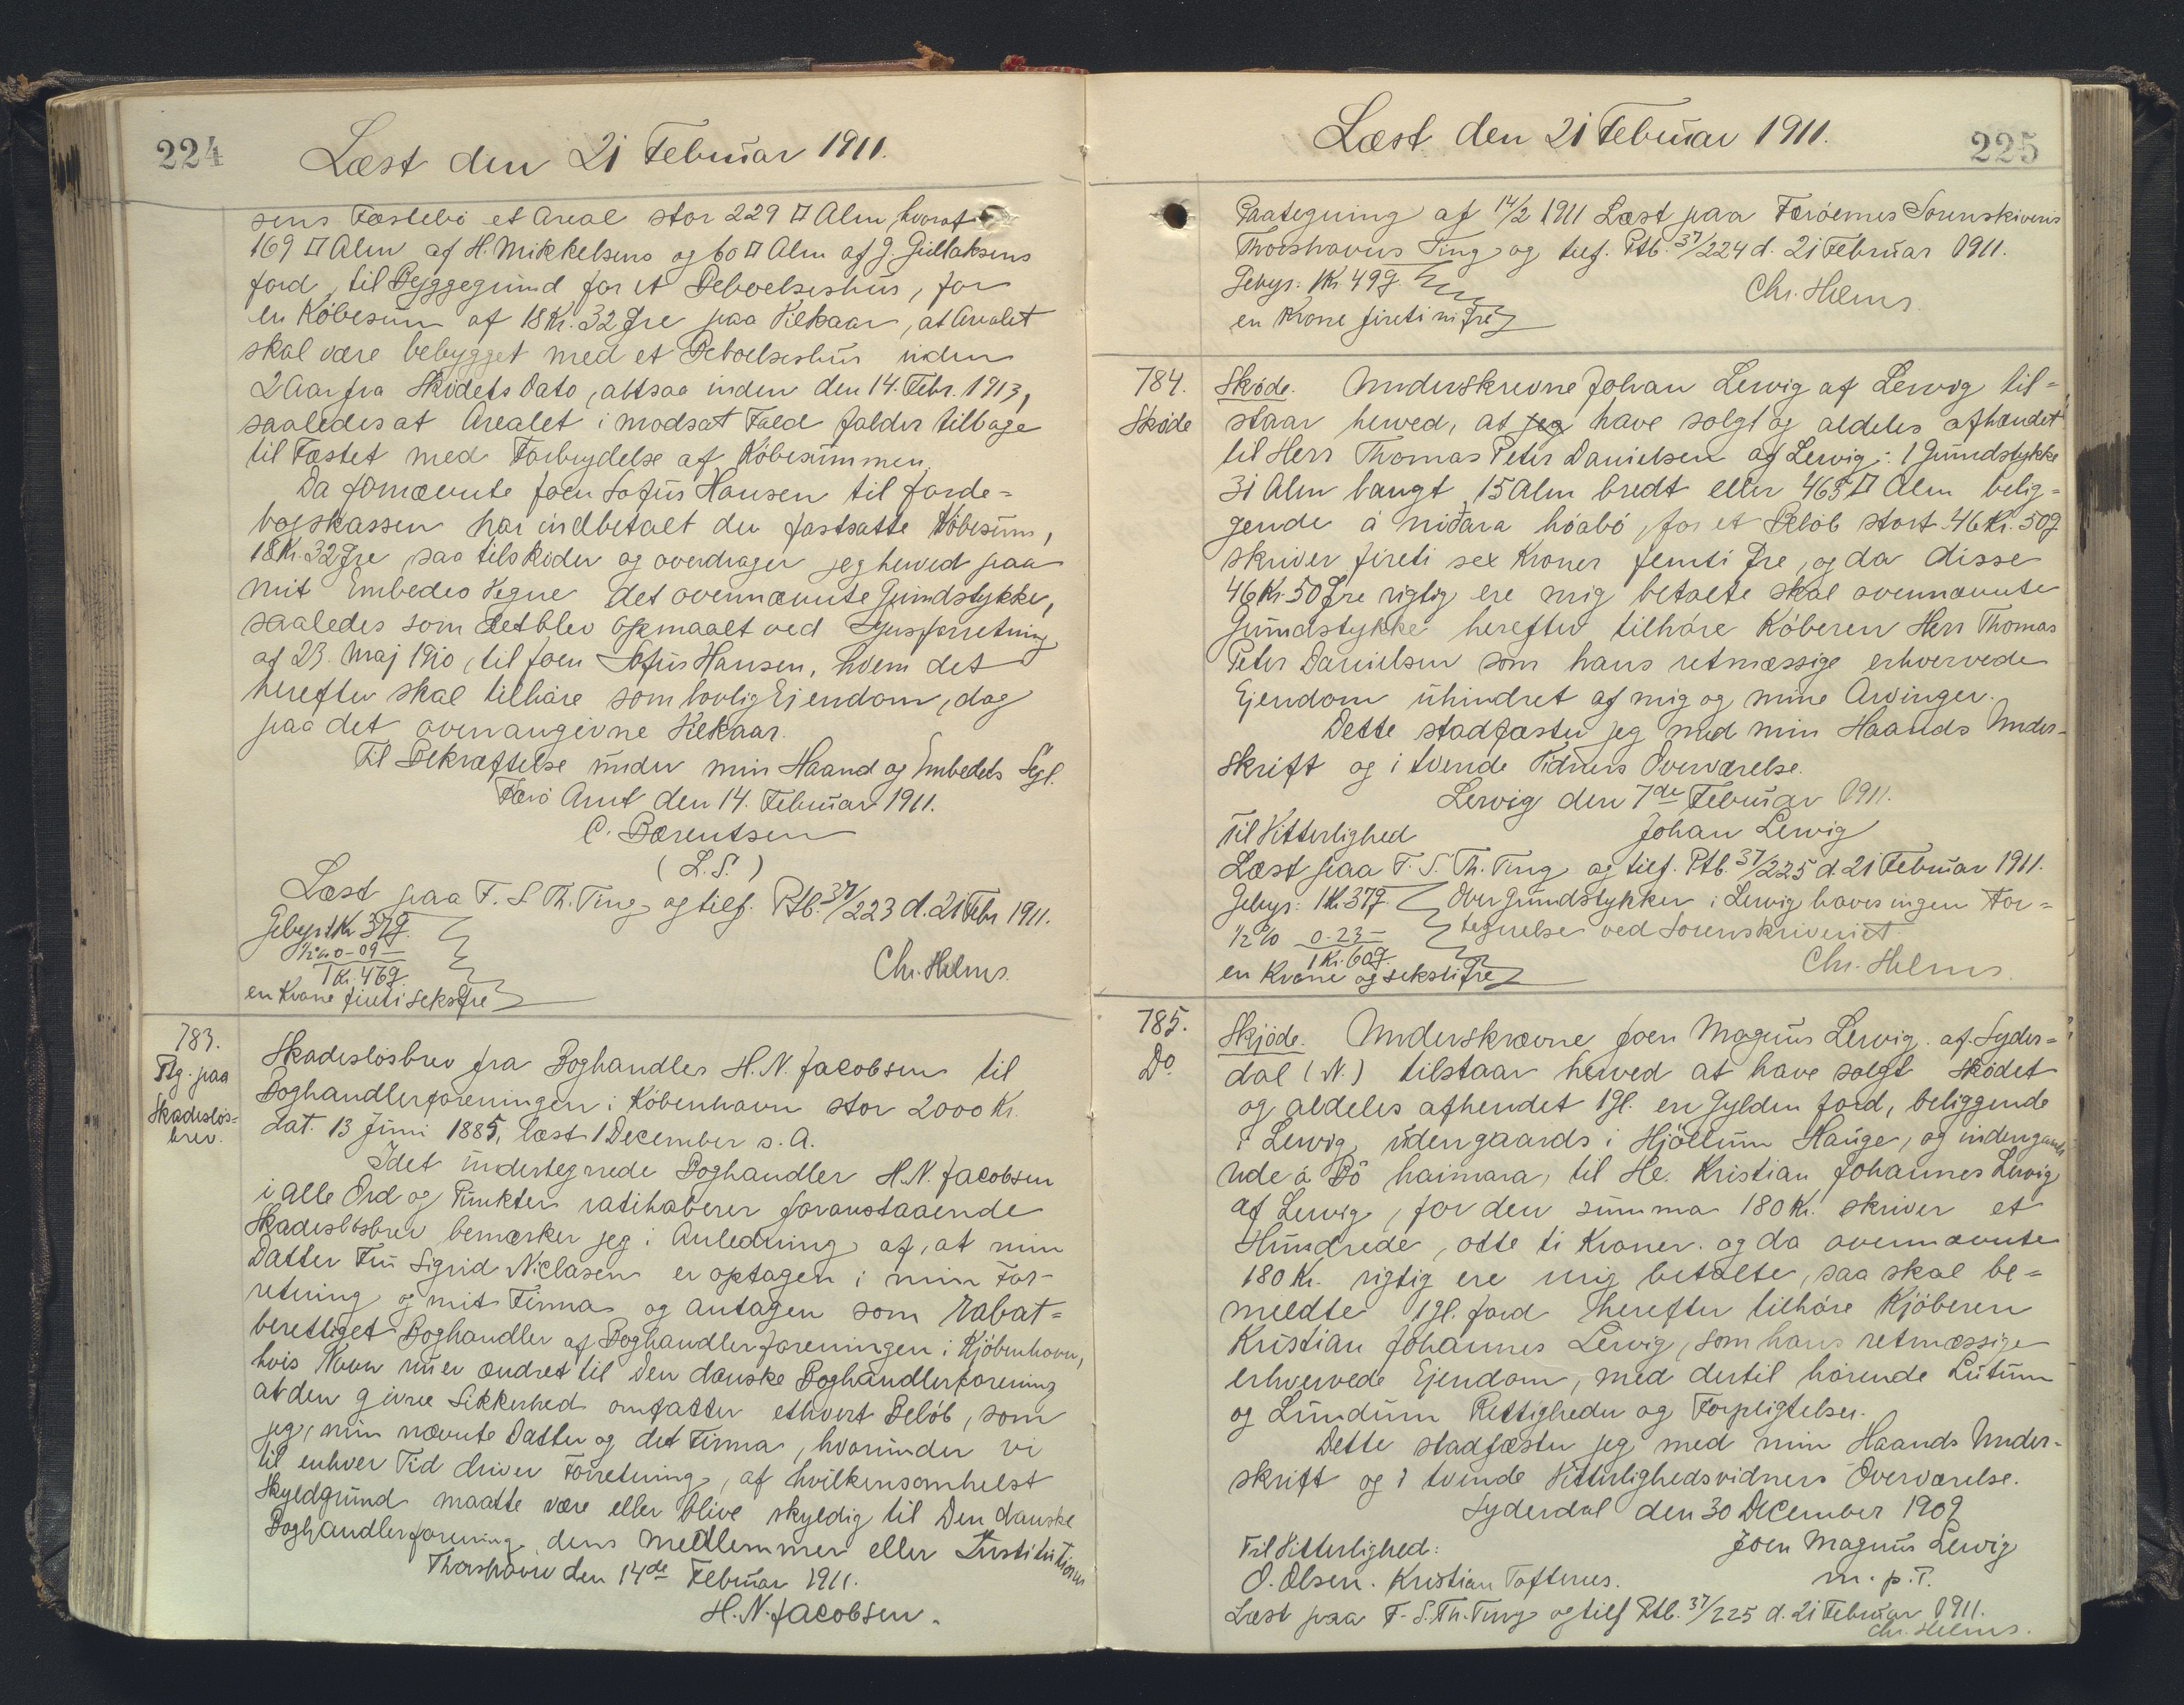 224
Læst den 21 Februar 1911.
sens Fæstebö et Areal stor 229 □ Alen, hvoraf
169 □ Alen af H. Mikkelsens og 60 □ Alen af J. Gullaksens
Jord, til Byggegrund for et Beboelseshus, for
en Købesum af 18 Kr. 32 Øre paa Vilkaar, at Arealet
skal være bebygget med et Beboelseshus inden
2 Aar fra Sködets Dato, altsaa inden den 14. Febr. 1913,
saaledes at Arealet i modsat Fald falder tilbage
til Fæstet med Fortrydelse af Købesummen.
Da fornævnte Joen Sofus Hansen til Jorde-
bogskassen har indbetalt den fastsatte Købesum,
18 Kr. 32 Øre, saa tilsköder og overdrager jeg herved paa
mit Embedes Vegne det ovennævnte Grundstykke,
saaledes som det blev opmaalt ved Synsforretning
af 23. Maj 1910, til Joen Sofus Hansen, hvem det
herefter skal tilhöre som lovlig Ejendom, dog
paa det ovenangivne Vilkaar.
Til Bekræftelse under min Haand og Embedets Segl.
Færö Amt den 14. Februar 1911.
C. Bærentsen
(L.S.)
Læst paa F. S. Th. Ting og tilf. Ptb. 37/223 d. 21 Febr 1911.
Gebyr 1 Kr 37 Ø.
1/2 % 0-09
1 Kr. 46 Ø.
Chr. Helms.
en Krone firti seks Øre
783.
Ptg. paa
Skadeslös-
brev.
Skadeslösbrev fra Boghandler H. N. Jacobsen til
Boghandlerforeningen i København stor 2000 Kr.
dat. 13 Juni 1885, læst 1 December s. A.
Idet undertegnede Boghandler H. N. Jacobsen
i alle Ord og Punkter ratihaberer foranstaaende
Skadeslösbrev bemærker jeg i Anledning af, at min
Datter Fru Sigrid Niclasen er optagen i min For-
retning og mit Firma og antagen som rabat-
berettiget Boghandler af Boghandlerforeningen i Kjöbenhavn,
hvis Navn nu er ændret til Den danske Boghandlerforening
at den givne Sikkerhed omfatter ethvert Belöb, som
jeg, min nævnte Datter og det Firma, hvorunder vi
til enhver Tid driver Forretning, af hvilkensomhelst
Skyldgrund maatte være eller blive skyldig til Den danske
Boghandlerforening, dens Medlemmer eller Institutioner
Thorshavn den 14de Februar 1911.
H. N. Jacobsen.
Læst den 21 Februar 1911.
225
Paategning af 14/2 1911 Læst paa Færöernes Sorenskriveris
Thorshavns Ting og tilf. Ptb. 37/224 d. 21 Februar 1911.
Gebyr: 1 Kr. 49 Ø.
Chr. Helms.
en Krone fireti ni Øre
784.
Sköde
Sköde. Underskrevne Johan Lervig af Lervig til-
staar herved, at jeg have solgt og aldeles afhændet
til Herr Thomas Peter Danielsen af Lervig: 1 Grundstykke
31 Alen langt 15 Alen bredt eller 465 □ Alen belig-
gende á niðara hóabó, for et Belöb stort 46 Kr. 50 Ø
skriver fireti sex Kroner femti Øre, og da disse
46 Kr. 50 Øre rigtig ere mig betalte skal ovennævnte
Grundstykke herefter tilhöre Köberen Herr Thomas
Peter Danielsen som hans retmæssige erhvervede
Ejendom uhindret af mig og mine Arvinger.
Dette stadfæster jeg med min Haands Under-
skrift og i tvende Vidners Overværelse.
Lervig den 7de Februar 1911.
Til Vitterlighed
Johan Lervig
Læst paa F. S. Th. Ting og tilf. Ptb. 37/225 d. 21 Februar 1911.
Gebyr: 1 Kr. 37 Ø. Over Grundstykker i Lervig haves ingen For-
1/2 % 0-23 tegnelse ved Sorenskriveriet.
1 Kr. 60 Ø.
Chr. Helms.
en Krone og seksti Øre
785.
Do.
Skjöde. Underskrevne Joen Magnus Lervig af Syder-
dal (N.) tilstaar herved at have solgt sködet
og aldeles afhendet 1 Gl. en Gylden Jord, beliggende
i Lervig, udengaards i Hjöllum Hauge, og indengaards
ude á Bö haimara, til Hr. Kristian Johannes Lervig
af Lervig, for den summa 180 Kr. skriver et
Hundrede, otte ti Kroner. og da ovennævnte
180 Kr. rigtig ere mig betalte, saa skal be-
meldte 1 Gl. Jord herefter tilhöre Kjöberen
Kristian Johannes Lervig, som hans retmæssige
erhvervede Ejendom, med dertil hörende Lutum
og Lundum Rettigheder og Forpligtelser.
Dette stadfæster jeg med min Haands Under-
skrift og i tvende Vitterlighedsvidners Overværelse.
Syderdal den 30 December 1909
Til Vitterlighed:
Joen Magnus Lervig
O. Olsen. Kristian Toftenes.
m. p. P.
Læst paa F. S. Th. Ting og tilf Ptb. 37/225 d. 21 Februar 1911.
Chr. Helms.